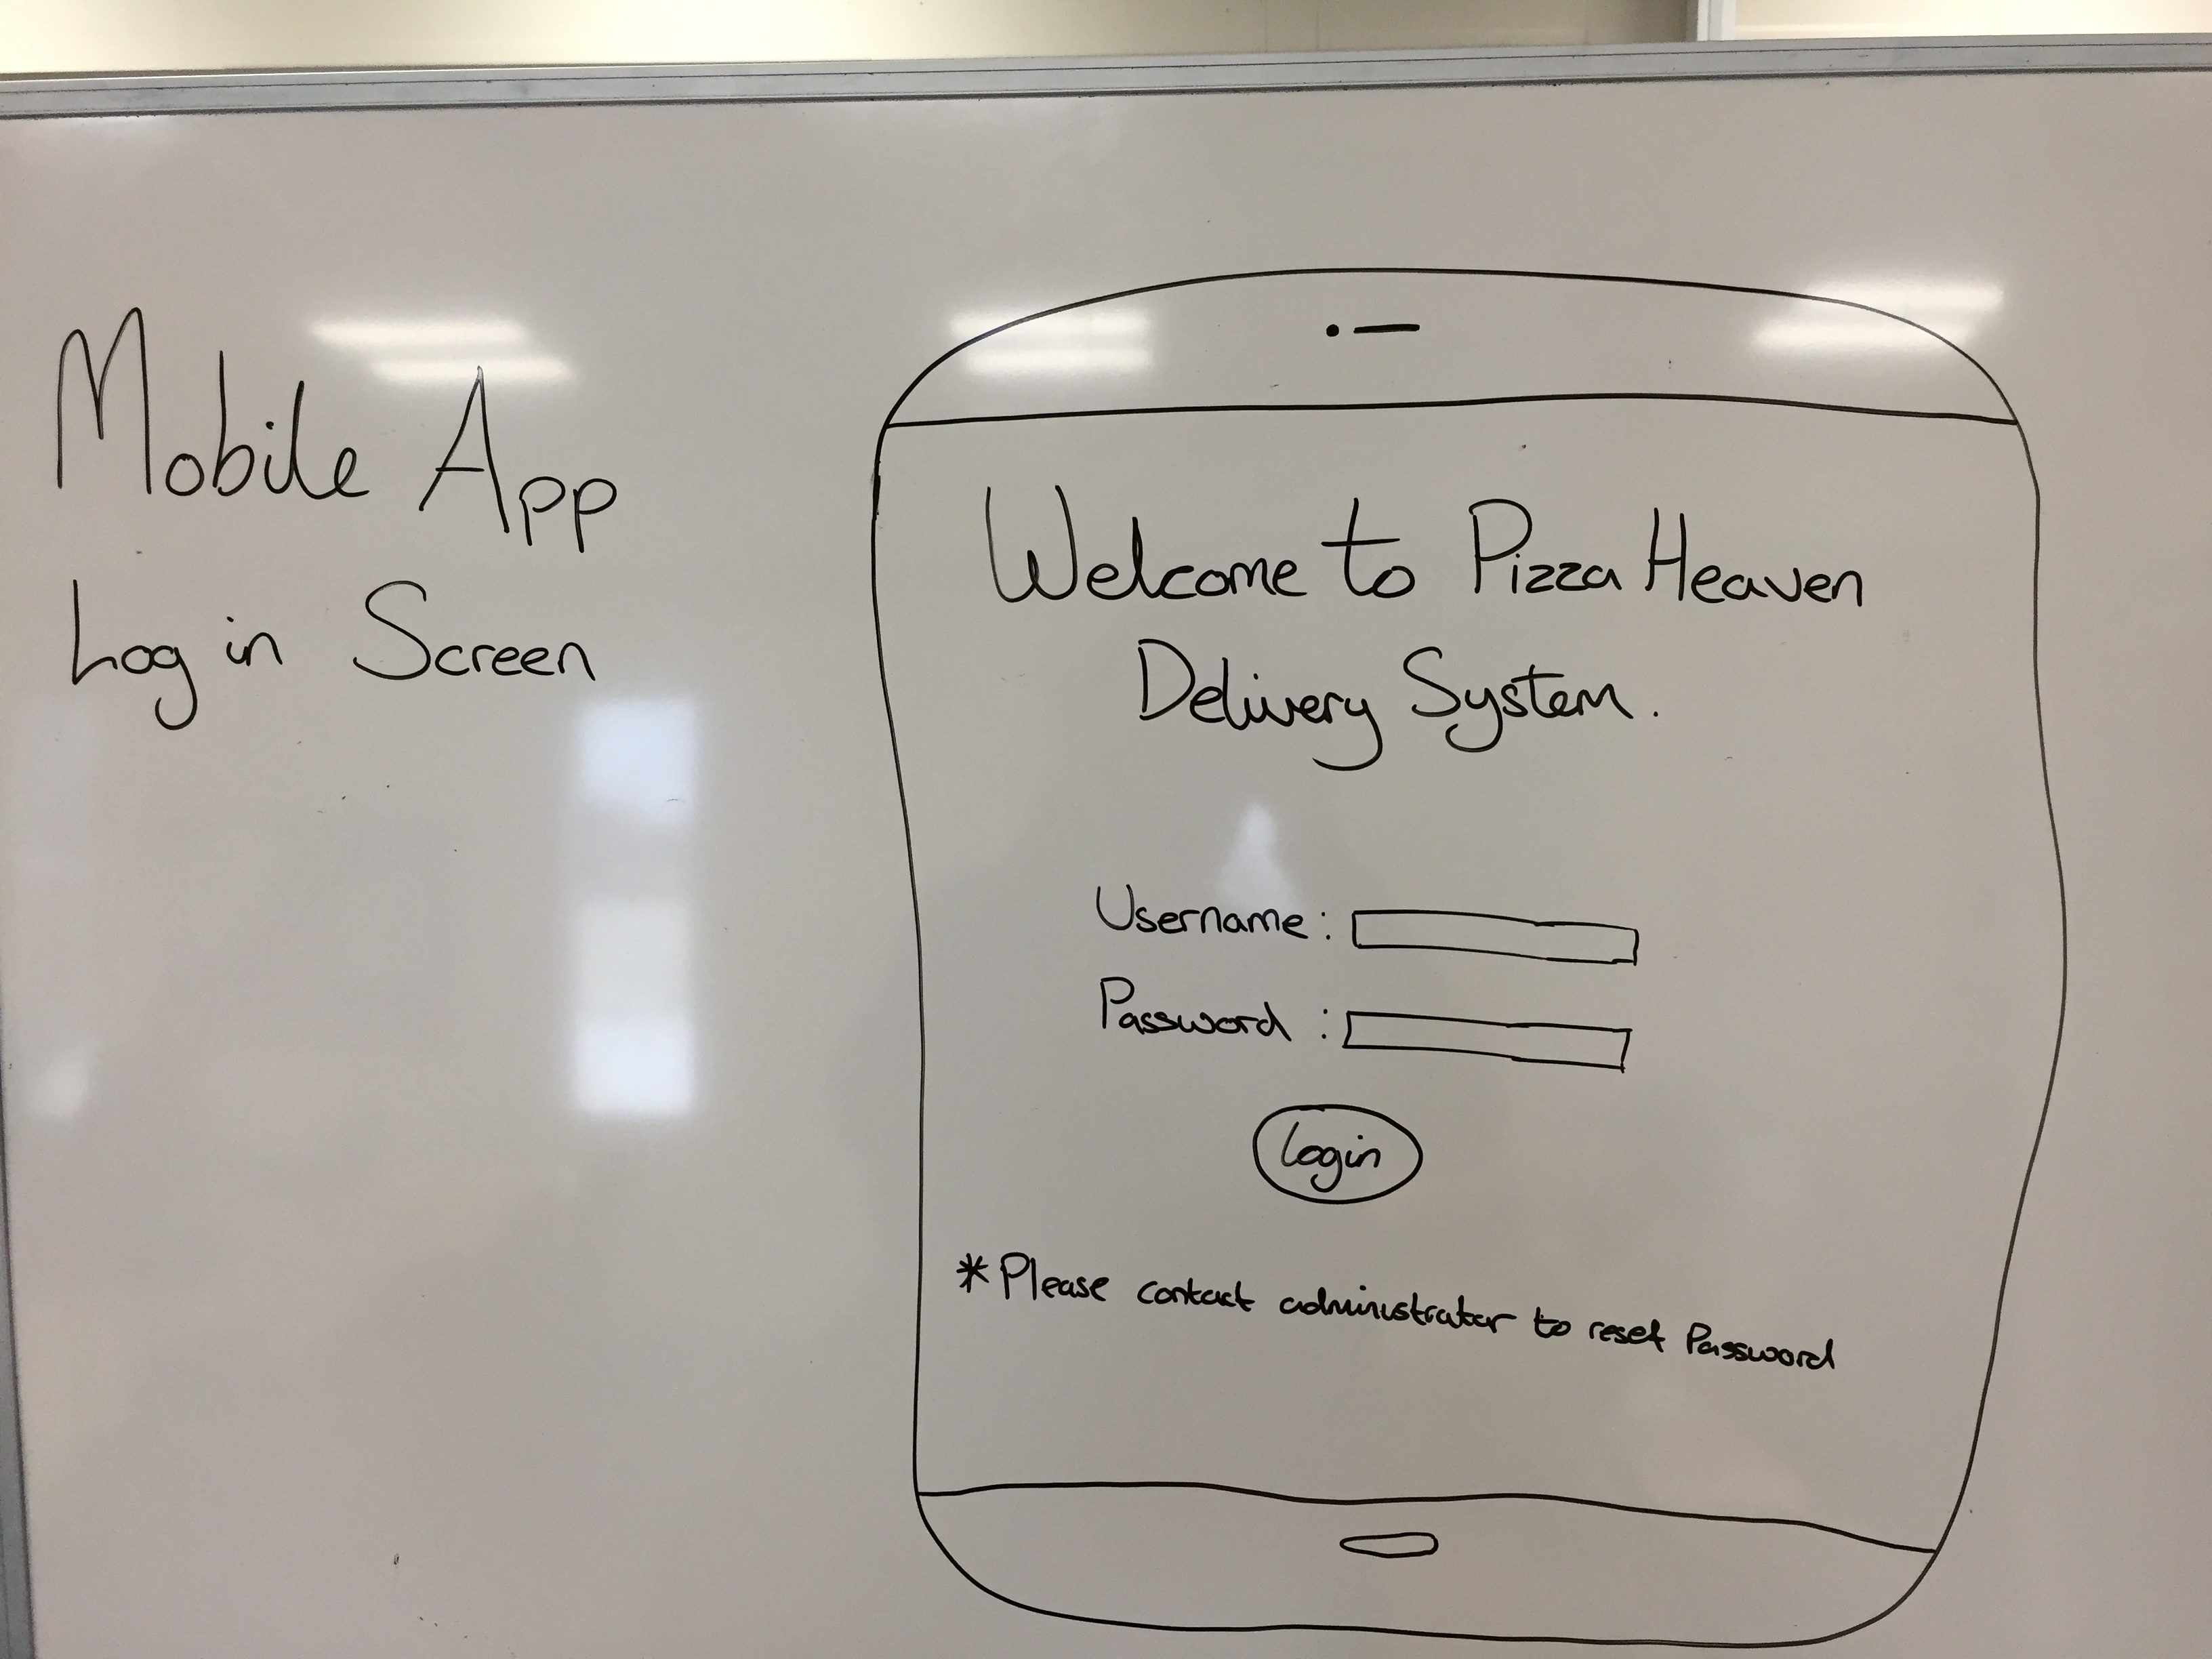 Mobile App
Log in Screen
Welcome to Pizza Heaven
Delivery System.
Username :
Password :
Login
*Please contact administrator to reset Password